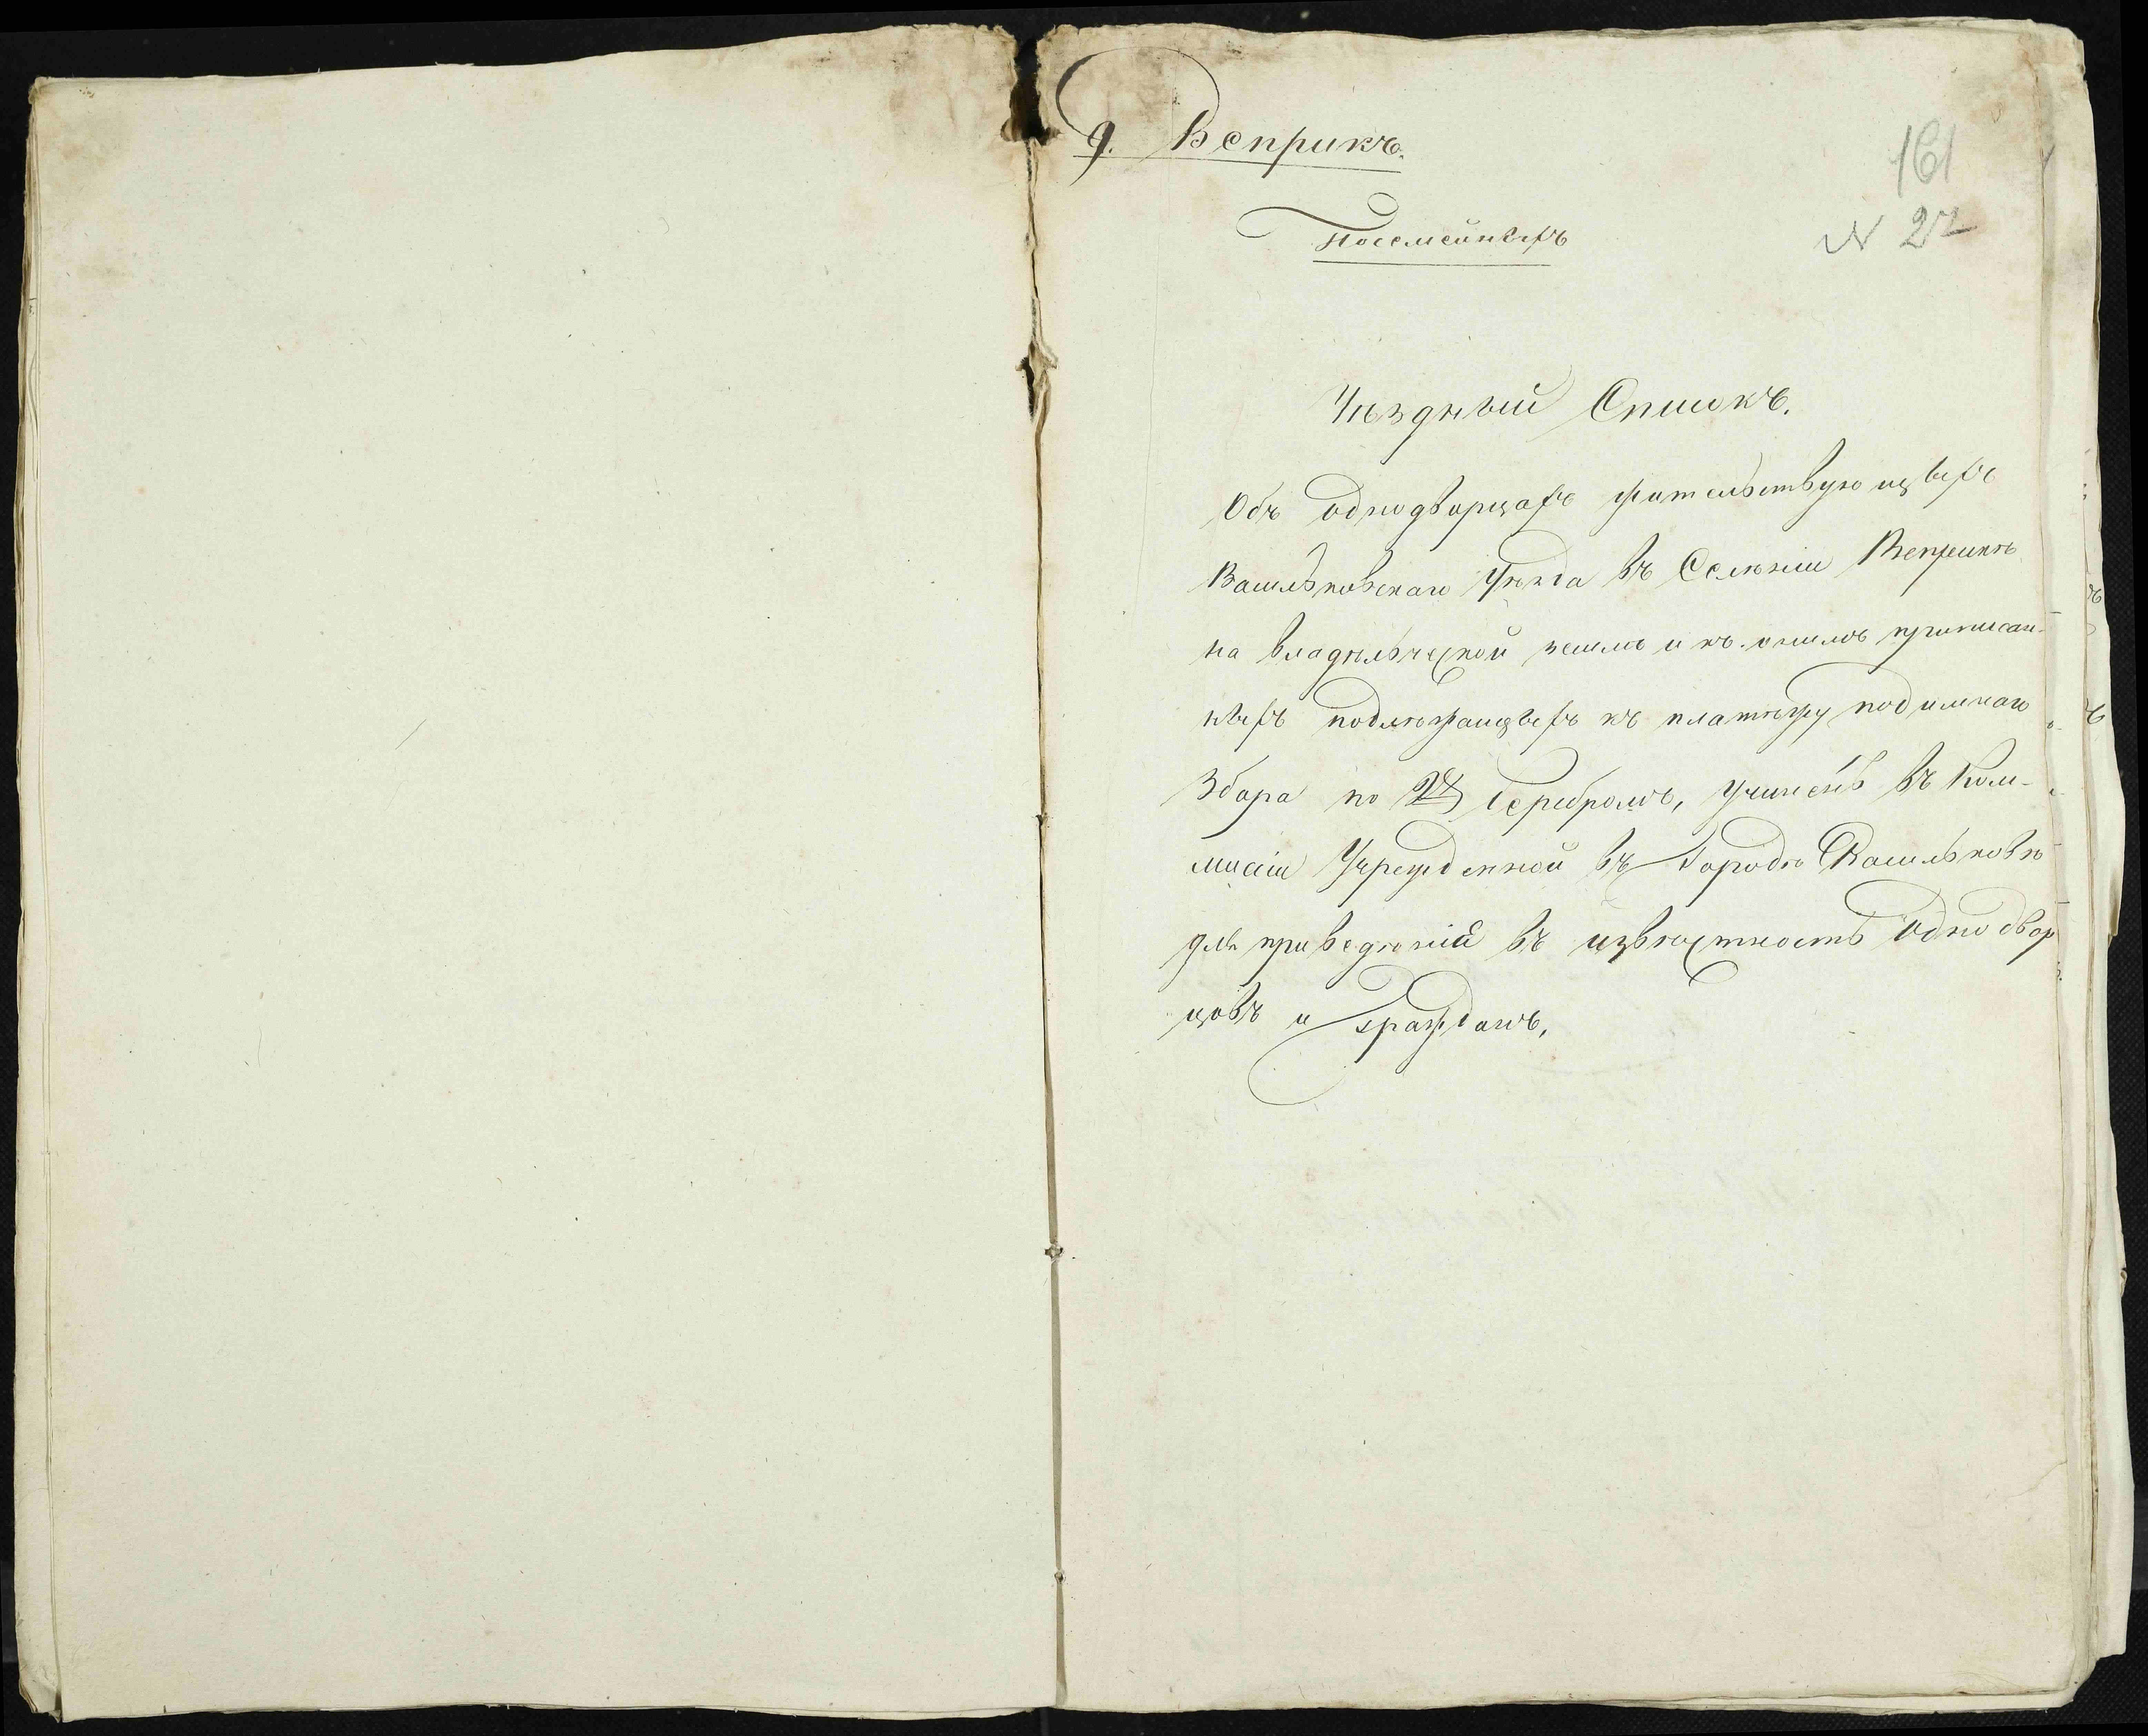 д. Веприкъ.
161
Посемейныхъ
№ 27
Уѣздный Списокъ.
Объ однодворцахъ жительствующыхъ
Васильковскаго Уѣзда въ Селѣніи Веприкѣ
на владѣльческой земли и къ онымъ приписан-
ныхъ подлѣжащыхъ къ платѣжу подимнаго
Збора по серебромъ, учинёнъ въ Ком-
мисіи Учрежденной въ Городѣ Васильковѣ
для приведѣнія въ извѣстность Однодвор
цовъ и Гражданъ,